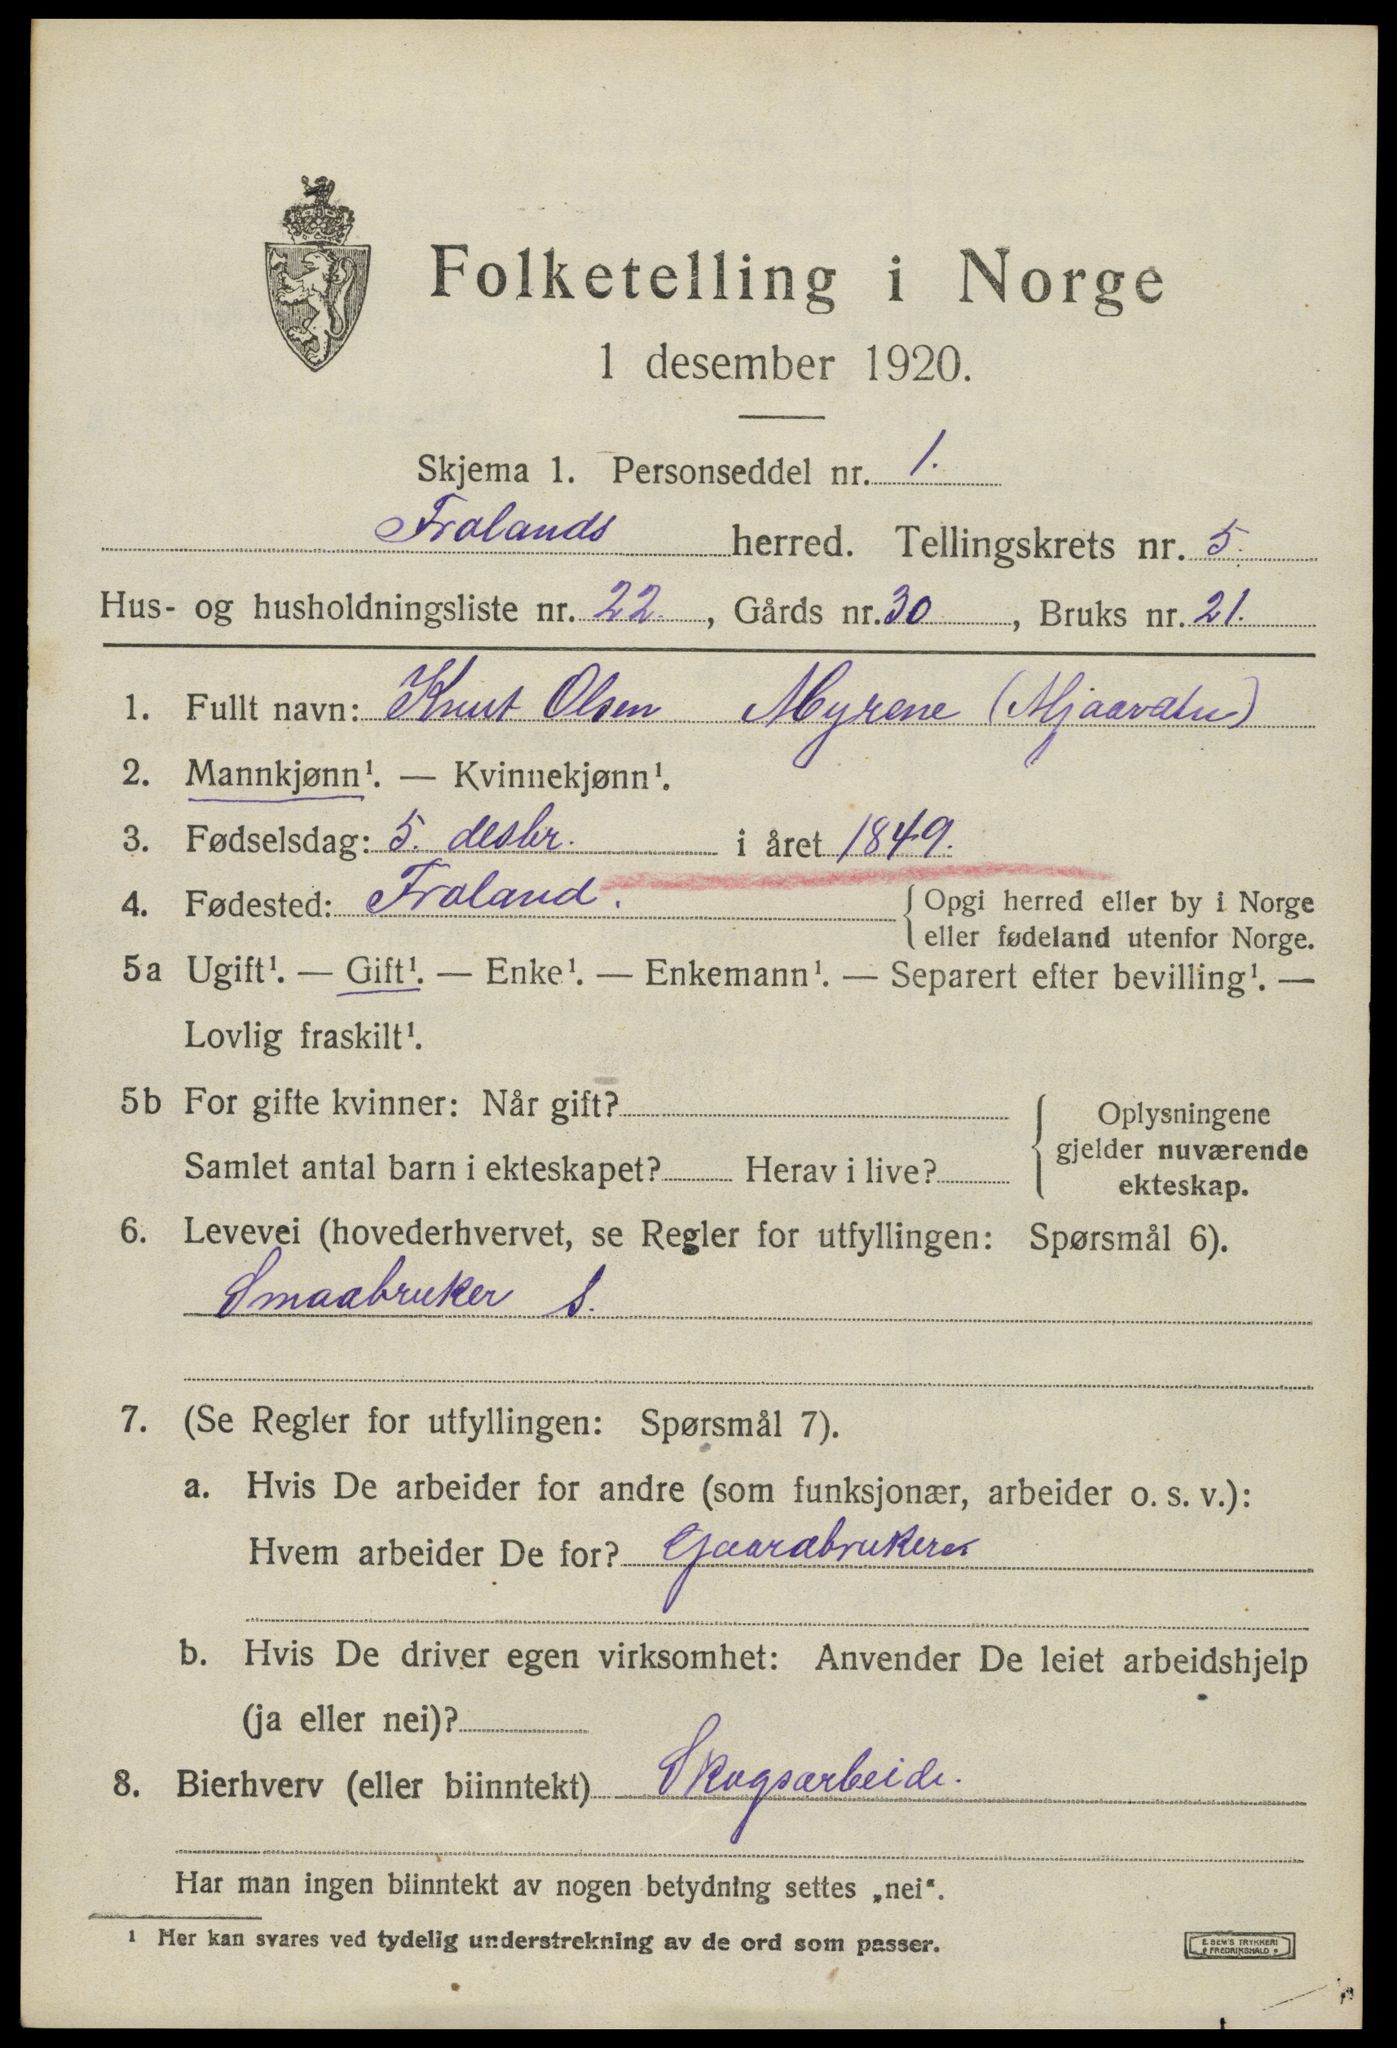 Folketelling i Norge
1 desember 1920.
Skjema 1. Personseddel nr. 1.
Frolands herred. Tellingskrets nr. 5.
Hus- og husholdningsliste nr. 22., Gårds nr. 30, Bruks nr. 21.
1. Fullt navn: Knut Olsen Myrene (Mjaavatn)
2. Mannkjønn¹. — Kvinnekjønn¹.
3. Fødselsdag: 5. desbr. i året 1849.
4. Fødested: Froland. { Opgi herred eller by i Norge
eller fødeland utenfor Norge.
5a Ugift¹. — Gift¹. — Enke¹. — Enkemann¹. — Separert efter bevilling¹. —
Lovlig fraskilt¹.
5b For gifte kvinner: Når gift?
Samlet antal barn i ekteskapet? Herav i live?
{ Oplysningene
gjelder nuværende
ekteskap.
6. Levevei (hovederhvervet, se Regler for utfyllingen: Spørsmål 6).
Smaabruker S.
7. (Se Regler for utfyllingen: Spørsmål 7).
a. Hvis De arbeider for andre (som funksjonær, arbeider o. s. v.):
Hvem arbeider De for? Gaardbrukere
b. Hvis De driver egen virksomhet: Anvender De leiet arbeidshjelp
(ja eller nei)?
8. Bierhverv (eller biinntekt) Skogsarbeide.
Har man ingen biinntekt av nogen betydning settes „nei“.
¹ Her kan svares ved tydelig understrekning av de ord som passer.
E. SEM'S TRYKKERI
FREDRIKSHALD